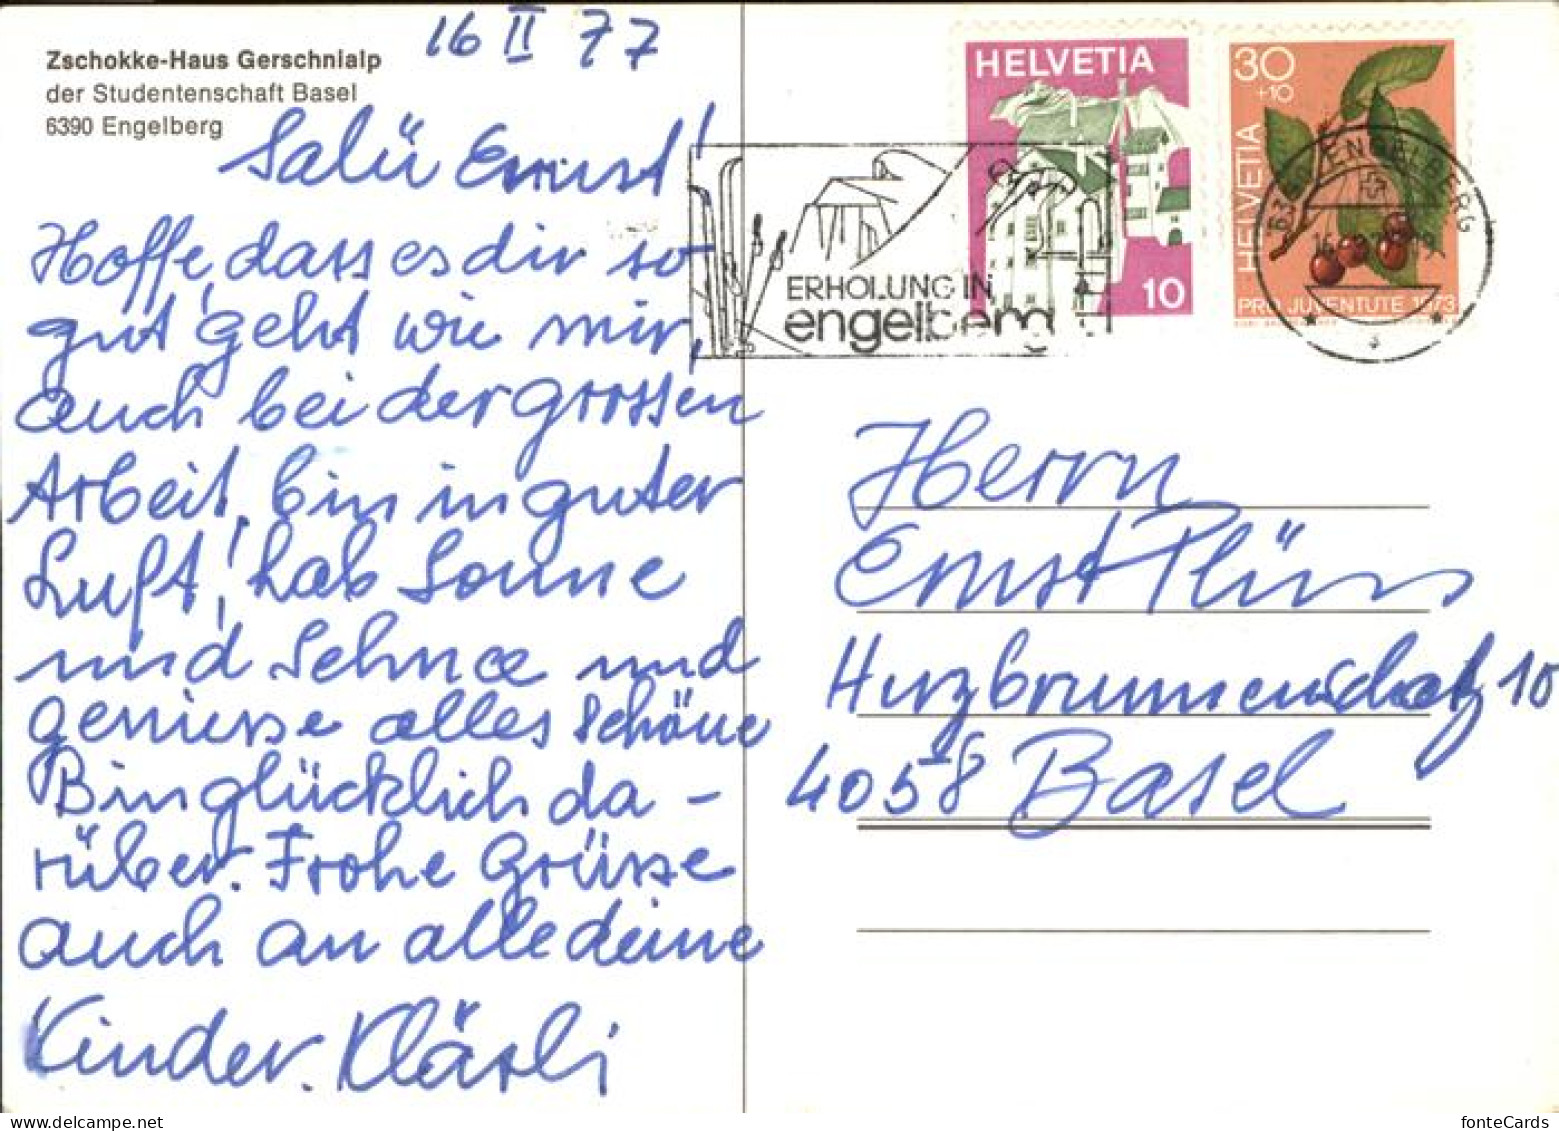 16 II 77
Zschokke-Haus Gerschnialp
der Studentenschaft Basel
6390 Engelberg
Salü Ernst!
Hoffe, dass es dir so
gut geht wie mir,
auch bei der grossen
Arbeit, bin in guter
Luft, hab Sonne
und Schnee und
geniesse alles Schöne
Bin glücklich da-
rüber. Frohe Grüsse
auch an alle deine
Kinder. Kläsli
HELVETIA
10
30
+10
HELVETIA
PRO JUVENTUTE 1973
ERHOLUNG IN
engelberg
ENGELBERG
Herrn
Ernst Plüss
10
4058 Basel
fonteCards